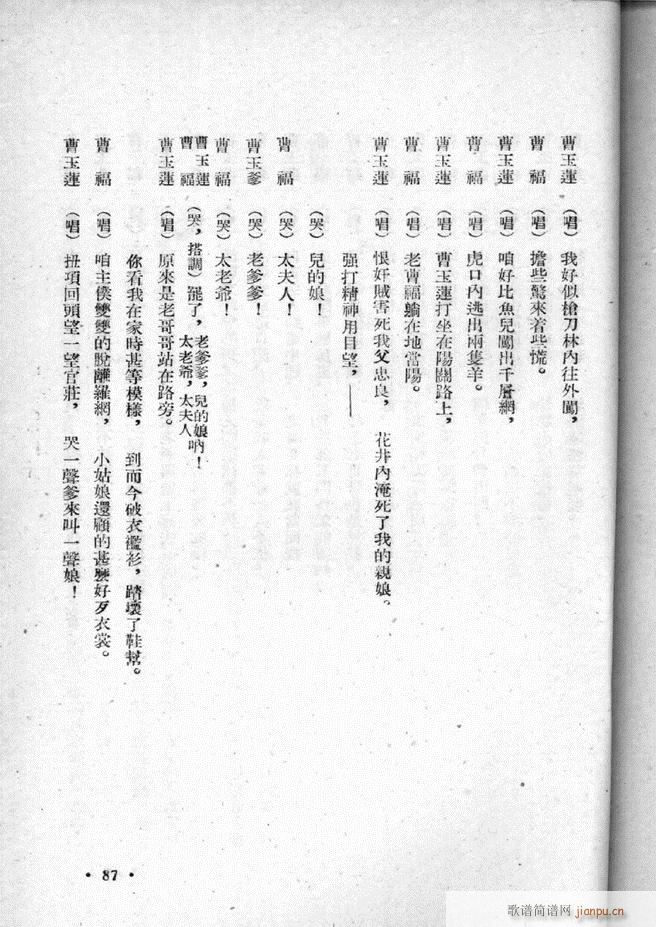 曹玉蓮　(唱)　我好似槍刀林內往外闖，
曹　福　(唱)　擔些驚來着些慌。
曹玉蓮　(唱)　咱好比魚兒闖出千層網，
曹　福　(唱)　虎口內逃出兩隻羊。
曹玉蓮　(唱)　曹玉蓮打坐在陽關路上，
曹　福　(唱)　老曹福躺在地當陽。
曹玉蓮　(唱)　恨奸賊害死我父忠良，　花井內淹死了我的親娘。
强打精神用目望，——
(哭)　兒的娘！
曹　福　(哭)　太夫人！
曹玉爹　(哭)　老爹爹！
曹　福　(哭)　太老爺！
曹玉蓮
曹　福　(哭，搭調)　罷了，老爹爹，兒的娘吶！
太老爺，太夫人
曹玉蓮　(唱)　原來是老哥哥站在路旁。
你看我在家時甚等模樣，　到而今破衣襤衫，踏壞了鞋幫。
曹　福　(唱)　咱主僕雙雙的脫離羅網，　小姑娘還顧的甚麽好歹衣裳。
曹玉蓮　(唱)　扭項回頭望一望官莊，　哭一聲爹來叫一聲娘！
• 87 •
歌谱简谱网 jianpu.cn